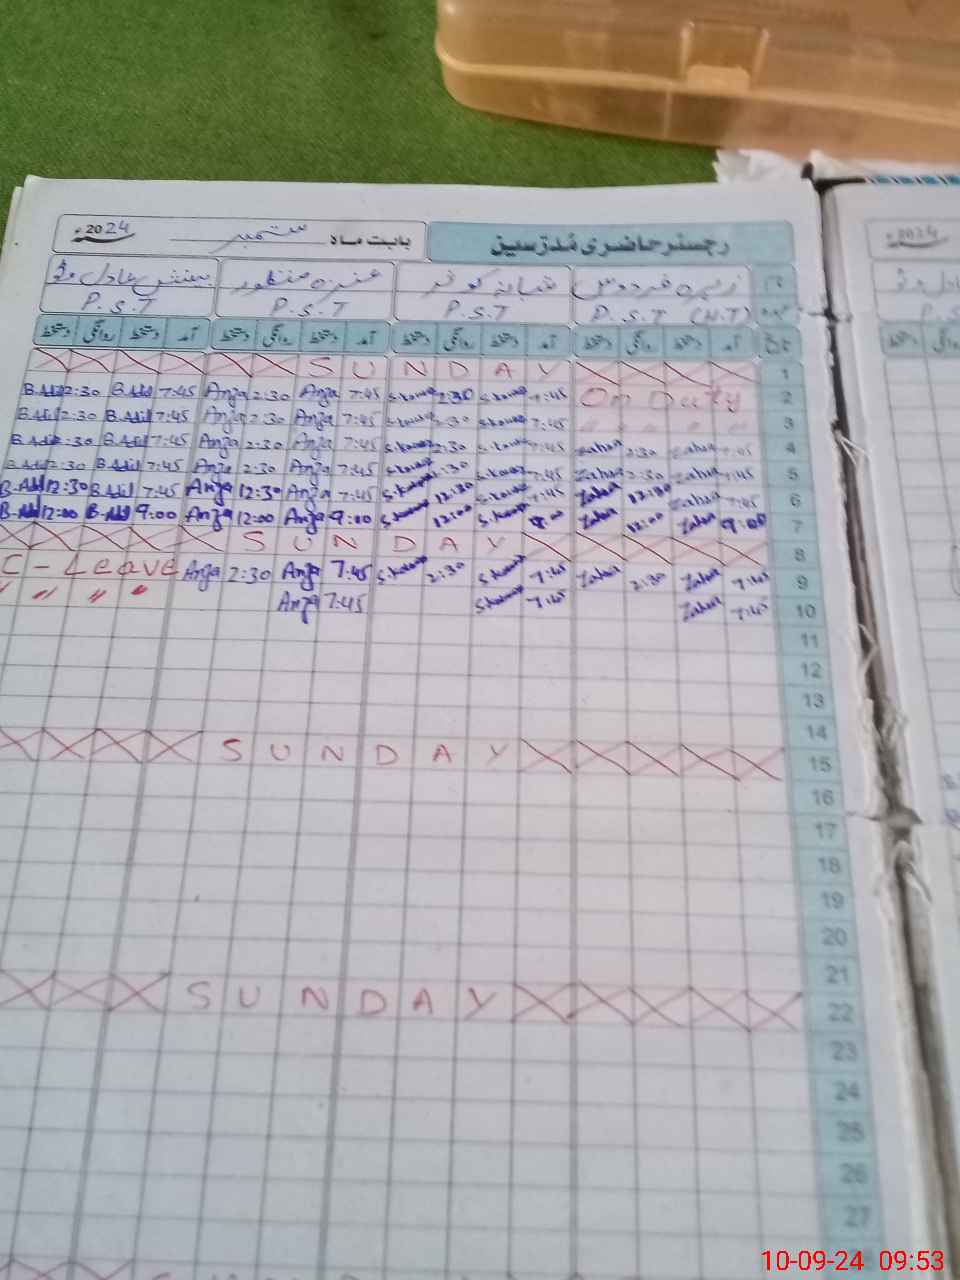 رجسٹر حاضری مُدرّسین بابت ماہ ستمبر 2024ء
زہرہ فردوس شبانہ کوثر عنزہ منظور
P.S.T (H.T) P.S.T P.S.T P.S.T
تاریخ آمد دستخط روانگی دستخط آمد دستخط روانگی دستخط آمد دستخط روانگی دستخط آمد دستخط روانگی دستخط
S U N D A Y 1
B.Adil 2:30 B.Adil 7:45 Anza 2:30 Anza 7:45 S.Kausar 2:30 S.Kausar 7:45 On Duty 2
B.Adil 2:30 B.Adil 7:45 Anza 2:30 Anza 7:45 S.Kausar 2:30 S.Kausar 7:45 " " " " 3
B.Adil 2:30 B.Adil 7:45 Anza 2:30 Anza 7:45 S.Kausar 2:30 S.Kausar 7:45 Zahra 2:30 Zahra 7:45 4
B.Adil 2:30 B.Adil 7:45 Anza 2:30 Anza 7:45 S.Kausar 2:30 S.Kausar 7:45 Zahra 2:30 Zahra 7:45 5
B.Adil 12:30 B.Adil 7:45 Anza 12:30 Anza 7:45 S.Kausar 12:30 S.Kausar 7:45 Zahra 12:30 Zahra 7:45 6
B.Adil 12:00 B.Adil 9:00 Anza 12:00 Anza 9:00 S.Kausar 12:00 S.Kausar 9:00 Zahra 12:00 Zahra 9:00 7
S U N D A Y 8
C - Leave Anza 2:30 Anza 7:45 S.Kausar 2:30 S.Kausar 7:45 Zahra 2:30 Zahra 7:45 9
" " " " Anza 7:45 S.Kausar 7:45 Zahra 7:45 10
11
12
13
14
S U N D A Y 15
16
17
18
19
20
21
S U N D A Y 22
23
24
25
26
27
10-09-24 09:53